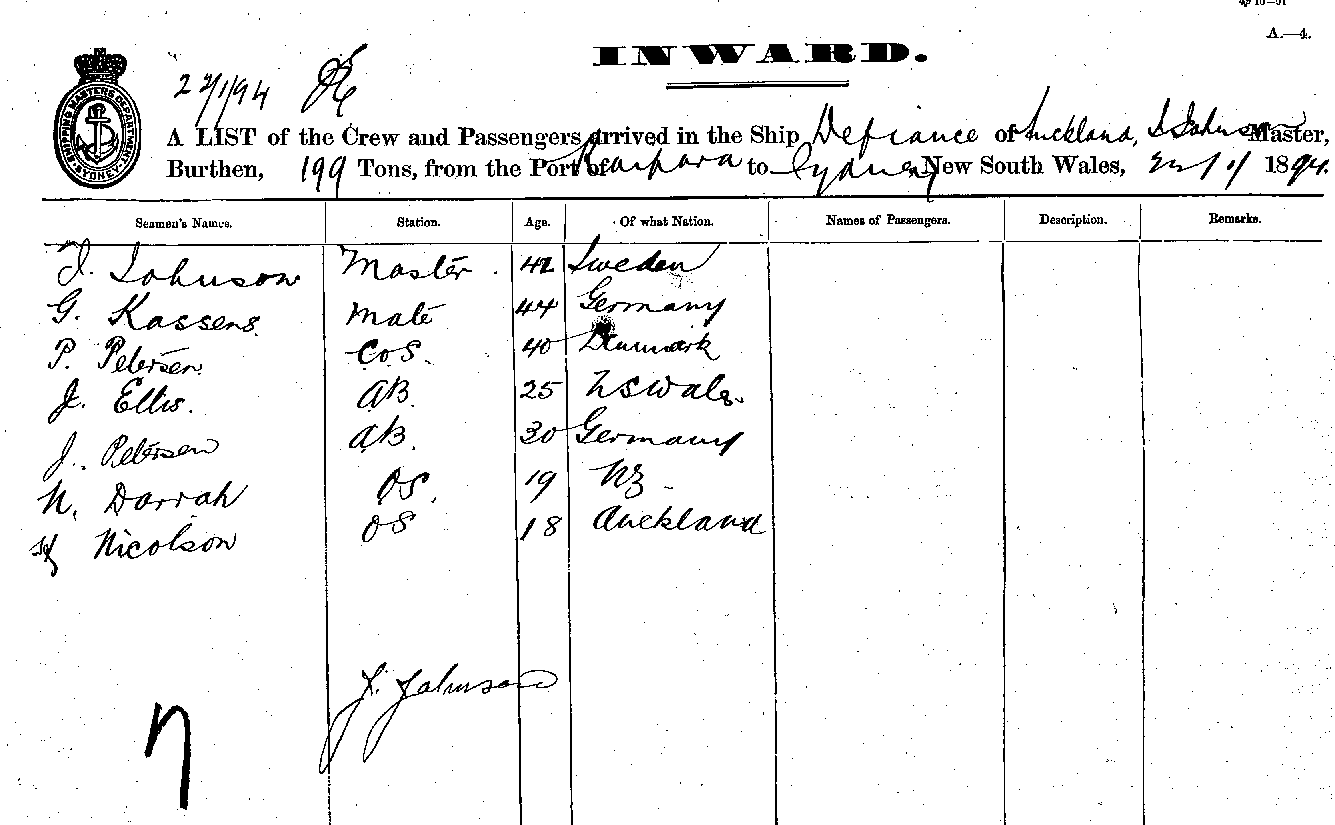 A.—4.
INWARD.
22/1/94
SHIPPING MASTERS DEPARTMENT SYDNEY
A LIST of the Crew and Passengers arrived in the Ship Defiance of Auckland, J Johnson Master,
Burthen, 199 Tons, from the Port of Kaipara to Sydney New South Wales, 22/1/ 1894.
Seamen's Names. Station. Age. Of what Nation. Names of Passengers. Description. Remarks.
J. Johnson Master. 42 Sweden
G. Kassens. Mate 44 Germany
P. Petersen. COS. 40 Denmark
J. Ellis. AB. 25 NSWales.
J. Petersen AB. 30 Germany
N. Darrah OS. 19 NZ
Nicolson OS 18 Auckland
J. Johnson
7